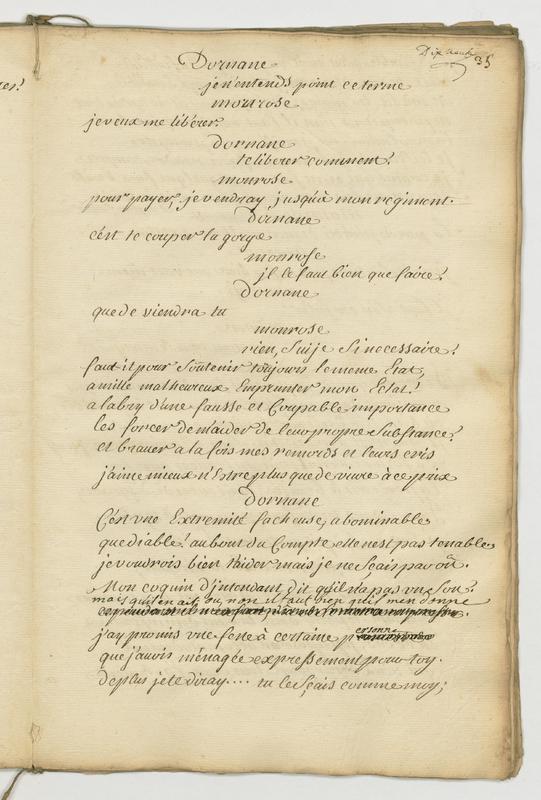 Dix huit
35
Dornane
je n'entends point ce terme
monrose
je veux me libérer.
dornane
te liberer comment?
monrose
pour payer, je vendray jusqu'à mon regiment.
Dornane
c'est te couper la gorge
monrose
jl le faut bien que faire?
Dornane
que de viendra tu
monrose
rien, suije si necessaire?
faut il pour soutenir toujours le meme Etat,
a mille malheureux Emprunter mon Eclat!
a labry d'une fausse et Coupable importance
les forcer de m'aider de leur propre substance?
et braver a la fois mes remords et leurs cris
j'aime mieux n'Estre plus que de vivre à ce prix
Dornane
C'est une Extremité facheuse, abominable
que diable! au bout du Compte elle n'est pas tenable
je voudrois bien t'aider mais je ne sçais par où.
Mon coquin d'intendant dit qu'il n'a pas un sou?
mais qu'il en ait, ou non il faut bien qu'il m'en donne
j'ay promis une fete à certaine personne
que j'avois ménagée expressement pour toy.
de plus je te diray.... tu le sçais comme moy;